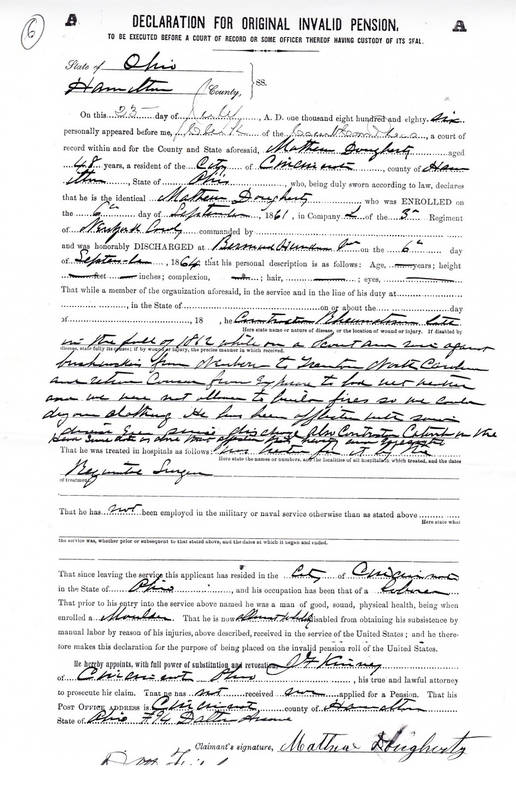 6
A
DECLARATION FOR ORIGINAL INVALID PENSION,
A
TO BE EXECUTED BEFORE A COURT OF RECORD OR SOME OFFICER THEREOF HAVING CUSTODY OF ITS SEAL.
State of Ohio
Hamilton County, } SS:
On this 23 day of July, A. D. one thousand eight hundred and eighty six
personally appeared before me, Clerk of the , a court of
record within and for the County and State aforesaid, Mathew Dougherty aged
48 years, a resident of the City of Cincinnati, county of Ham
ilton, State of Ohio who, being duly sworn according to law, declares
that he is the identical Mathew Dougherty who was ENROLLED on
the 6th day of September, 1861, in Company I of the 3rd Regiment
of New York Cavalry commanded by
and was honorably DISCHARGED at Bermuda Hundred Va on the 6th day
of September, 1864 that his personal description is as follows: Age, years; height
feet inches; complexion, ; hair, ; eyes,
That while a member of the organization aforesaid, in the service and in the line of his duty at
, in the State of on or about the day
of , 18 , he Contracted Rheumatism late
Here state name or nature of disease, or the location of wound or injury. If disabled by
in the fall of 1862 while on a Scout and raid against
disease, state fully its causes; if by wound or injury, the precise manner in which received.
bushwhackers from Newbern to Trenton North Carolina
and when Come from Exposure to bad wet weather
and we were not allowed to build fires so we could
dry our clothing He has been afflicted with said
disease Ever since discharge Also Contracted Catarrh in the
That he was treated in hospitals as follows: was treated for it by the
Here state the names or numbers, and the localities of all hospitals in which treated, and the dates
Regimental Surgeon
of treatment.
That he has not been employed in the military or naval service otherwise than as stated above
Here state what
the service was, whether prior or subsequent to that stated above, and the dates at which it began and ended.
That since leaving the service this applicant has resided in the City of Cincinnati
in the State of Ohio, and his occupation has been that of a Laborer
That prior to his entry into the service above named he was a man of good, sound, physical health, being when
enrolled a Moulder. That he is now disabled from obtaining his subsistence by
manual labor by reason of his injuries, above described, received in the service of the United States; and he there-
fore makes this declaration for the purpose of being placed on the invalid pension roll of the United States.
He hereby appoints, with full power of substitution and revocation, Kinney
of Cincinnati Ohio, his true and lawful attorney
to prosecute his claim. That he has not received nor applied for a Pension. That his
POST OFFICE ADDRESS is Cincinnati, county of Hamilton
State of Ohio Dalton Avenue
Claimant's signature, Mathew Dougherty